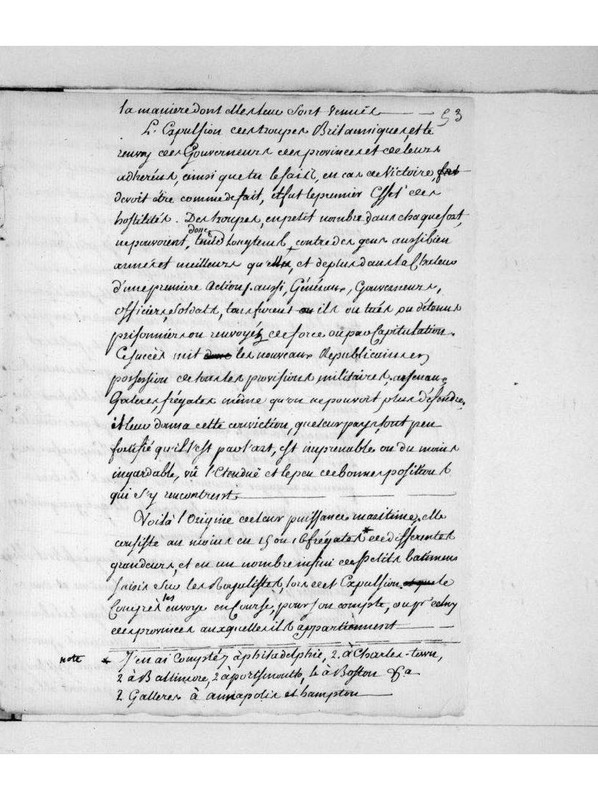 la maniere dont elles leur sont venues
53
L'Expulsion des troupes Britanniques, et le
renvoy des Gouverneurs des provinces et de leurs
adherens, ainsi que tu le sais, en cas de Victoire,
devoit être comme de fait, et fut le premier Effet des
hostilités. Des troupes, en petit nombre dans chaque fort,
ne pouvoient, donc tenir longtems, contre des gens aussi bien
armés et meilleurs qu'elles, et de plus dans la Chaleur
d'une premiere Action; aussi, Généraux, Gouverneurs,
officiers, Soldats, tous furent ou ils ou tués ou détenus
prisonniers ou renvoyés de force ou par Capitulation.
Ce succès mit donc les nouveaux Republicains en
possession de toutes les provisions militaires,
Galeres, frégates même qu'on ne pouvoit plus défendre,
et leur donna cette conviction, que leur pays tout peu
fortifié qu'il est par l'art, est imprenable ou du moins
ingardable, vû l'Etenduë et le peu de bonnes positions
qui s'y rencontrent.
Voilà l'Origine de leur puissance maritime, elle
consiste au moins en 15 ou 16 frégates * de differentes
grandeurs, et en un nombre infini de Petits batimens
saisis sur les Royalistes lors de cet Expulsion que le
Congrès les envoye en Course, pour son compte, ou pr celuy
des provinces auxquelles ils appartiennent
note * J'en ai Compté 7 à philadelphie, 2 à Charles-town,
2 à Baltimore, 2 à portsmouth, 4 à Boston &a
2 Galleres à annapolis et hampton